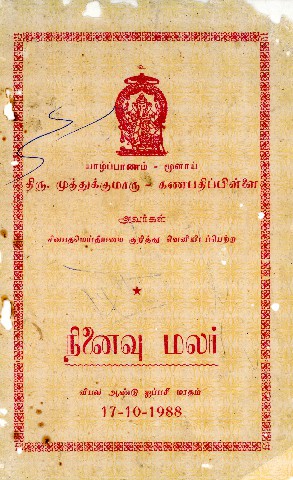 யாழ்ப்பாணம் - மூளாய்
திரு. முத்துக்குமாரு - கணபதிப்பிள்ளை
அவர்கள்
சிவபதமெய்தியமை குறித்து வெளியிடப்பெற்ற
நினைவு மலர்
விபவ ஆண்டு ஐப்பசி மாதம்
17-10-1988